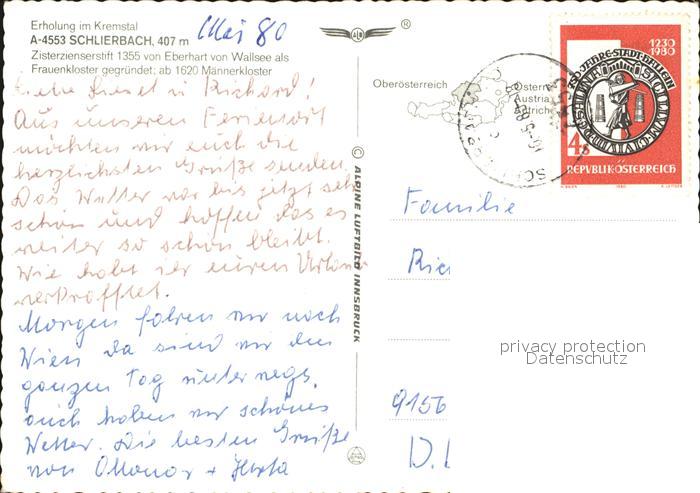 Erholung im Kremstal
A-4553 SCHLIERBACH, 407 m
Zisterzienserstift 1355 von Eberhart von Wallsee als
Frauenkloster gegründet; ab 1620 Männerkloster
Mai 80
®
Oberösterreich
Österre
Austria
utrich
1230
1980
4s
REPUBLIK·ÖSTERREICH
1980
Liebe Liesel u Richard!
Aus unseren Ferienort
möchten wir euch die
herzlichsten Grüße senden.
Das Wetter war bis jetzt sehr
schön und hoffen das es
weiter so schön bleibt.
Wie habt ihr euren Urlaub
verkraftet.
Morgen fahren wir nach
Wien da sind wir den
ganzen Tag unterwegs,
auch haben wir schönes
Wetter. Die besten Grüße
von Ottomar + Herta
© ALPINE LUFTBILD INNSBRUCK
Familie
Ric
privacy protection
Datenschutz
9156
D.